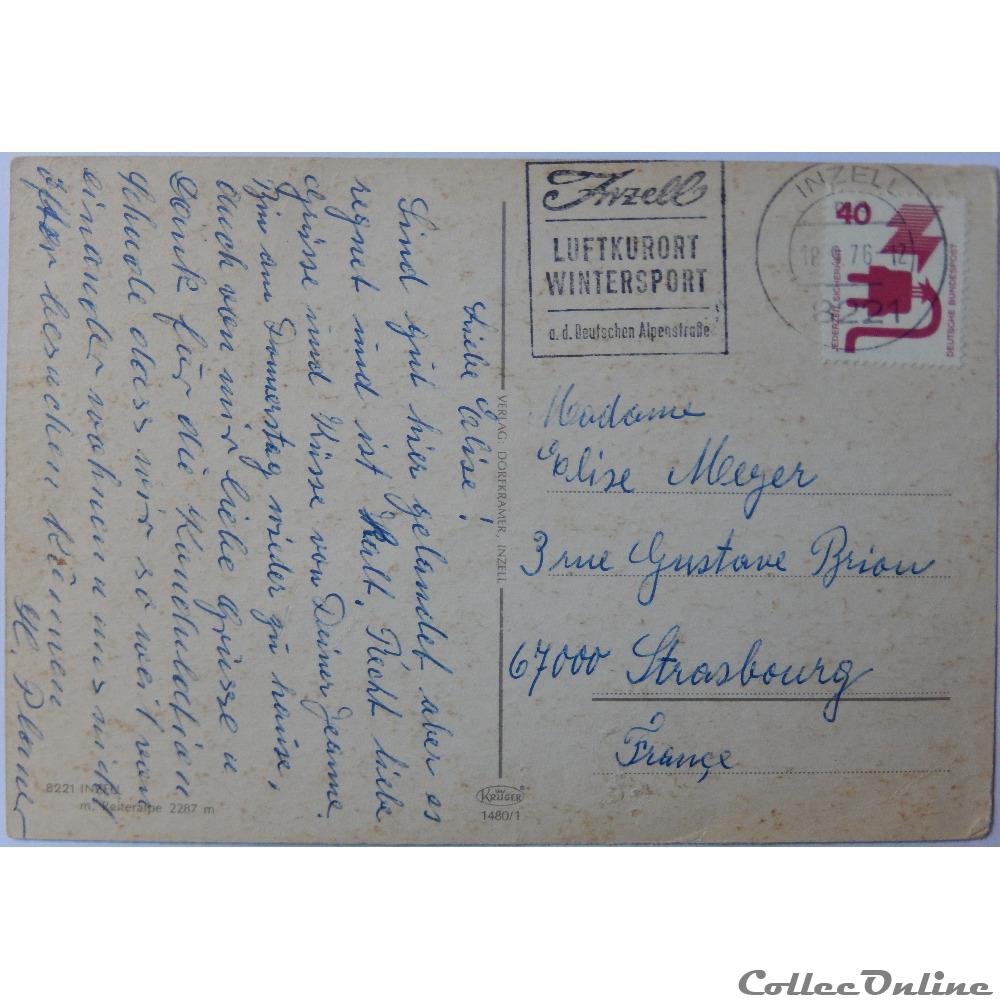 Liebe Elise!
Sind gut hier gelandet aber es
regnet und ist Kalt. Recht liebe
Grüsse und Küsse von Deiner Jeanne.
Bin am Donnerstag wieder zu hause.
auch von mir liebe Grüsse u
Dank für die Kondulation
Schade dass wir so weit von
einander wohnen u uns nicht
öfter besuchen können
VERLAG: DORFKRAMER, INZELL
8221 INZELL
m. Reiteralpe 2287 m
KRÜGER
1480/1
Inzell
LUFTKURORT
WINTERSPORT
a.d. Deutschen Alpenstraße
INZELL
76-12
8221
40
JEDERZEIT SICHERHEIT
DEUTSCHE BUNDESPOST
Madame
Elise Meyer
3 rue Gustave Brion
67000 Strasbourg
Françe
CollecOnline